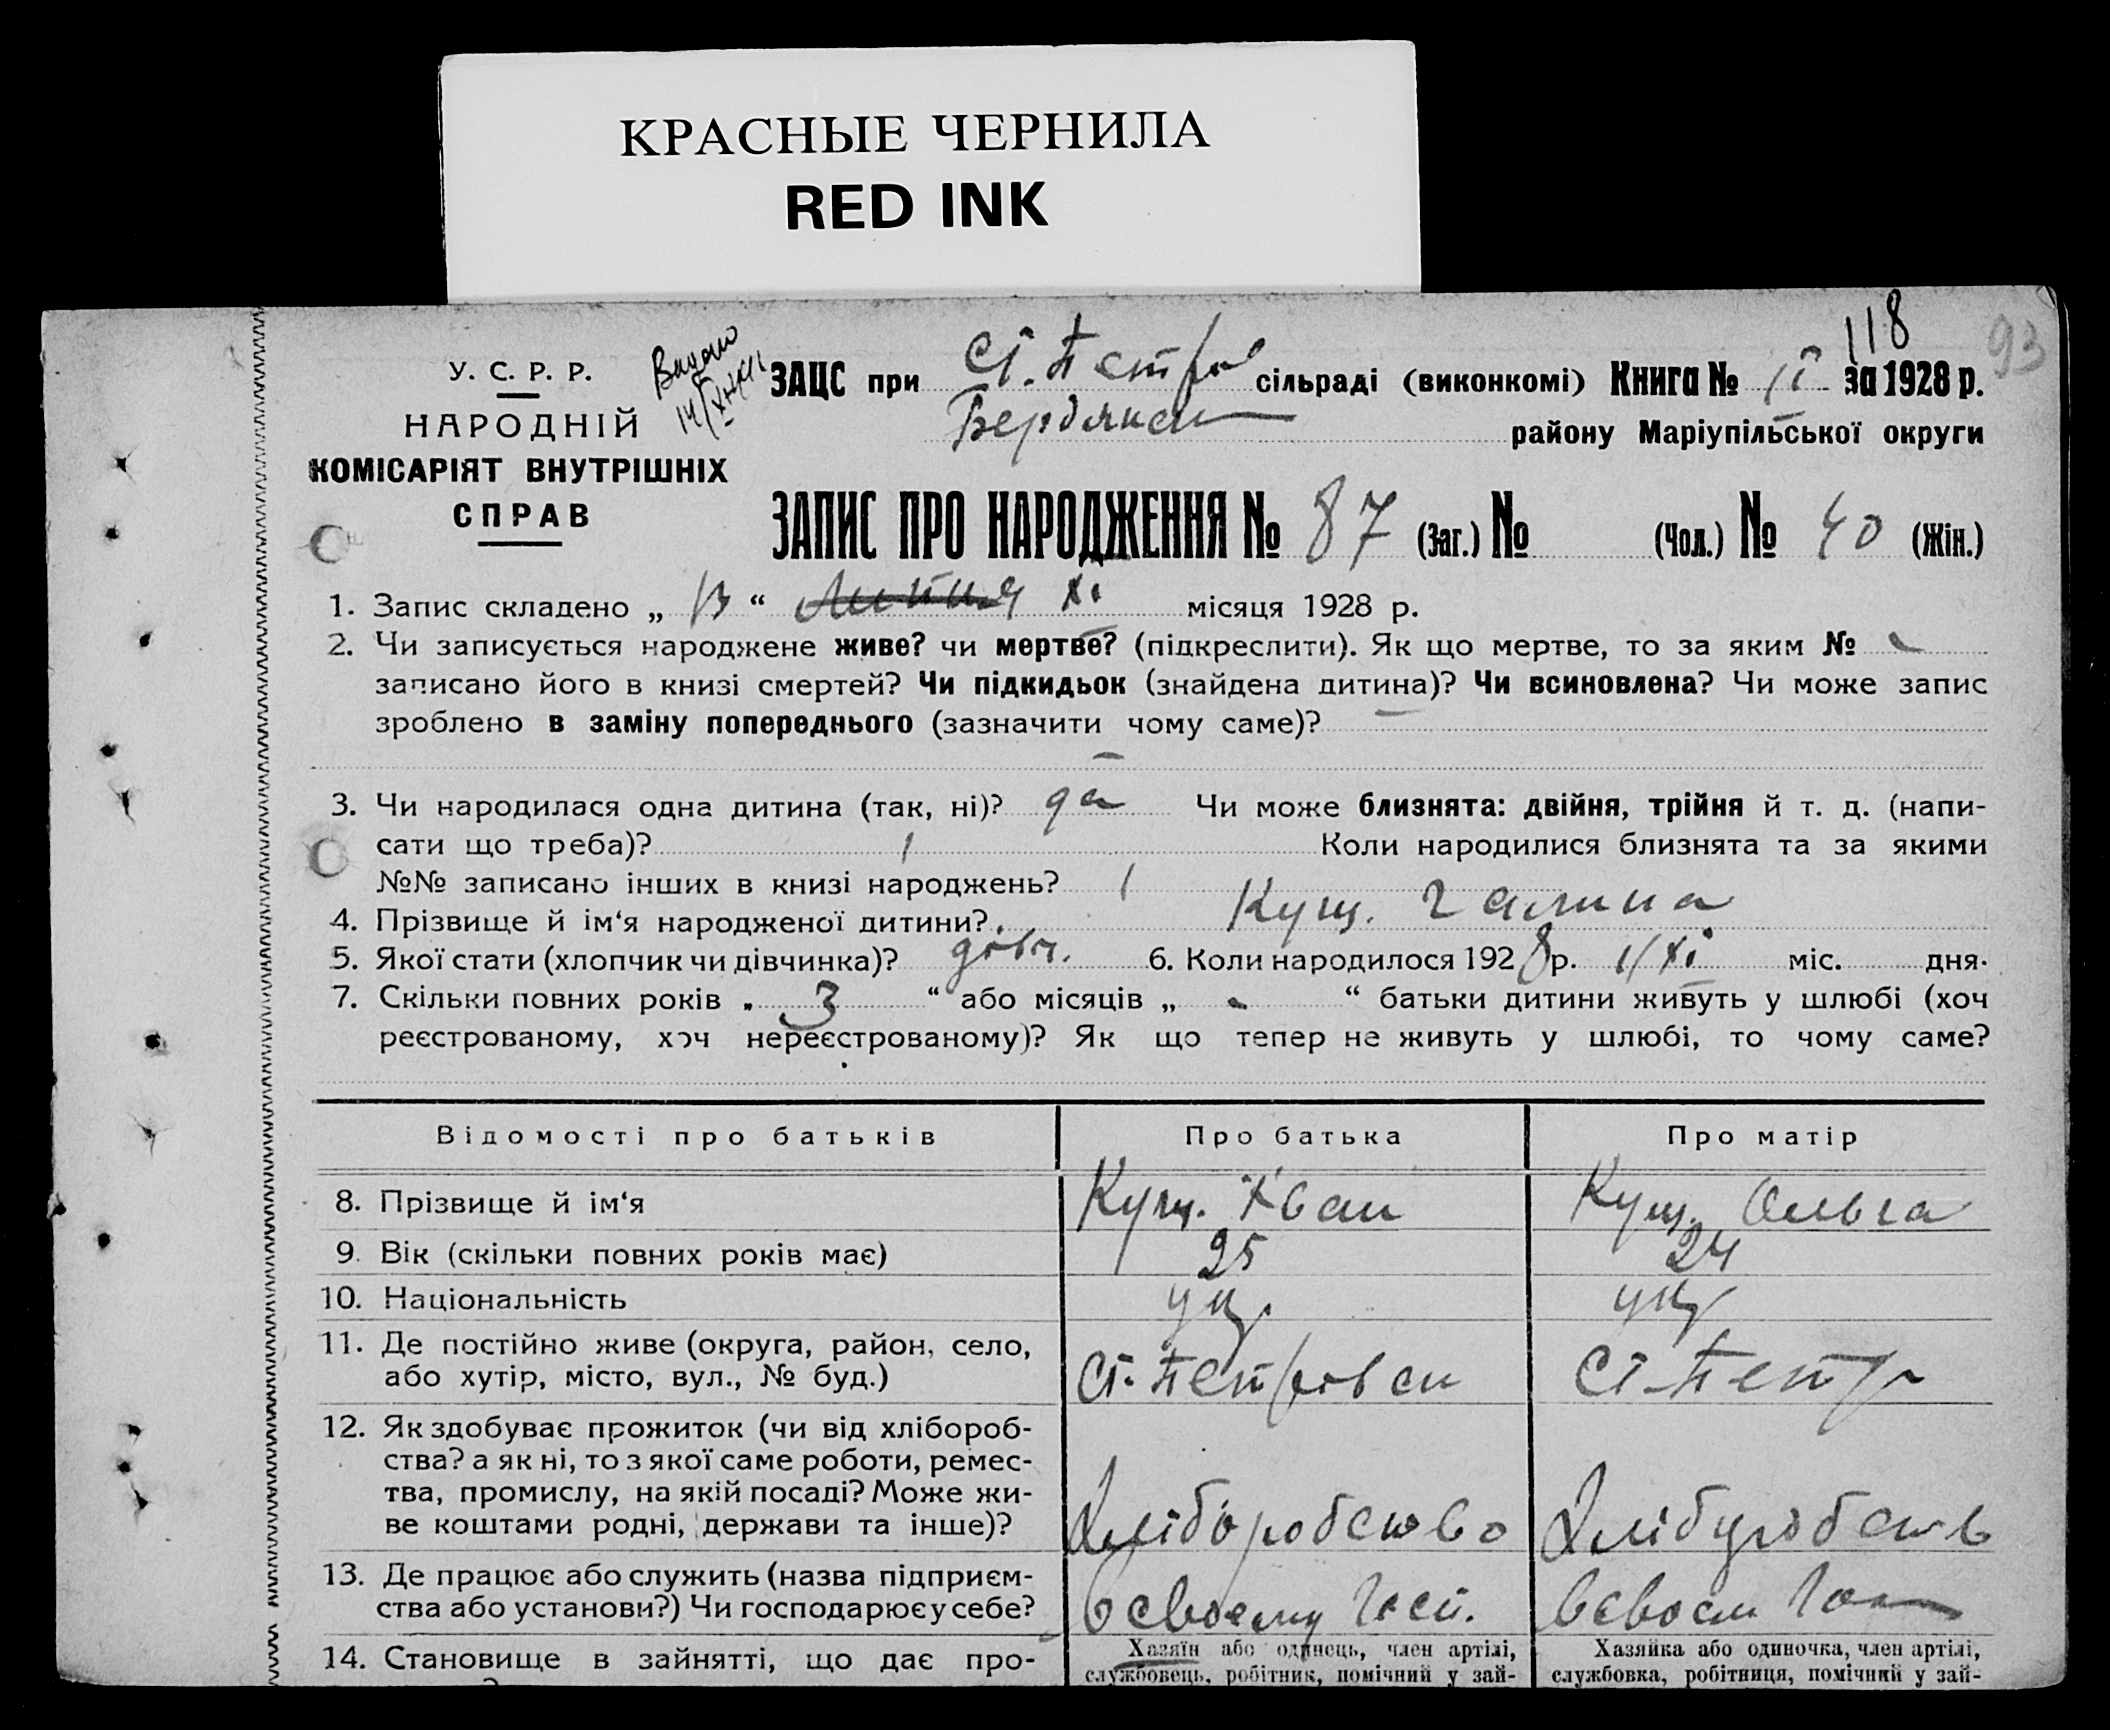 КРАСНЫЕ ЧЕРНИЛА
RED INK
118
93
У. С. Р. Р.
НАРОДНІЙ
КОМІСАРІЯТ ВНУТРІШНІХ
СПРАВ
ЗАЦС при Ст. Петров сільраді (виконкомі) Книга № II за 1928 р.
Бердянськ району Маріупільської округи
ЗАПИС ПРО НАРОДЖЕННЯ № 87 (Заг.) № (Чол.) № 40 (Жін.)
1. Запис складено „ 13 “ Липня XI місяця 1928 р.
2. Чи записується народжене живе? чи мертве? (підкреслити). Як що мертве, то за яким № -
записано його в книзі смертей? Чи підкидьок (знайдена дитина)? Чи всиновлена? Чи може запис
зроблено в заміну попереднього (зазначити чому саме)? —
—
3. Чи народилася одна дитина (так, ні)? да Чи може близнята: двійня, трійня й т. д. (напи-
сати що треба)? / Коли народилися близнята та за якими
№№ записано інших в книзі народжень? /
4. Прізвище й ім‘я народженої дитини? Кущ. Галина
5. Якої стати (хлопчик чи дівчинка)? дівч. 6. Коли народилося 1928 р. 1/XI міс. дня.
7. Скільки повних років „ 3 “ або місяців „ - “ батьки дитини живуть у шлюбі (хоч
реєстрованому, хоч нереєстрованому)? Як що тепер не живуть у шлюбі, то чому саме?
Відомості про батьків Про батька Про матір
8. Прізвище й ім‘я Кущ. Іван Кущ. Ольга
9. Вік (скільки повних років має) 25 24
10. Національність укр укр
11. Де постійно живе (округа, район, село,
або хутір, місто, вул., № буд.) Ст. Петровськ Ст-Петр
12. Як здобуває прожиток (чи від хлібороб-
ства? а як ні, то з якої саме роботи, ремес-
тва, промислу, на якій посаді? Може жи-
ве коштами родні, держави та інше)? Хліборобство Хлібуробств
13. Де працює або служить (назва підприєм-
ства або установи?) Чи господарює у себе? в своєму Госп. в своєм Гос
14. Становище в зайнятті, що дає про- Хазяїн або одинець, член артілі, Хазяйка або одиночка, член артілі,
службовець, робітник, помічний у зай- службовка, робітниця, помічний у зай-